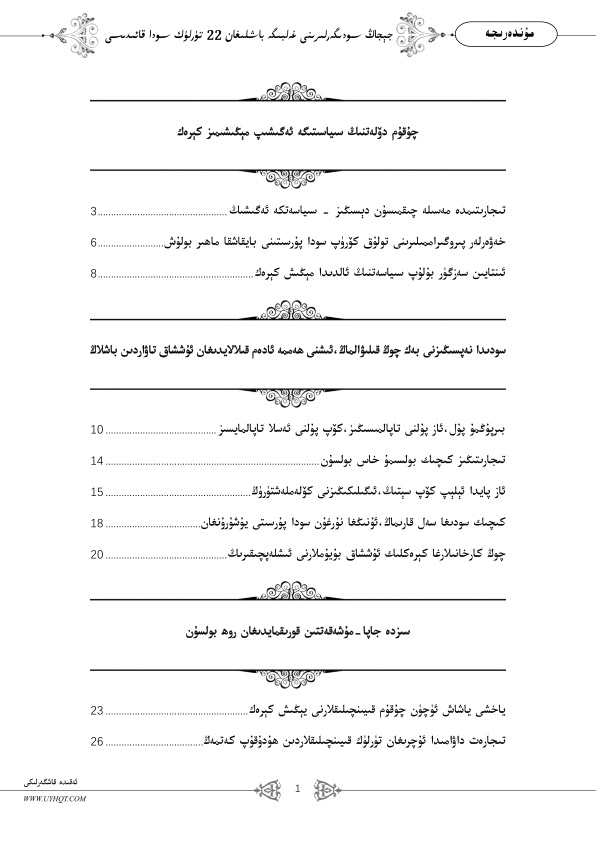 مۇندەرىجە
جېجاڭ سودىگەرلىرىنى غەلبىگە باشلىغان 22 تۈرلۈك سودا قائىدىسى
چۇقۇم دۆلەتنىڭ سىياسىتىگە ئەگىشىپ مېڭىشىمىز كېرەك
تىجارىتىمدە مەسىلە چىقمىسۇن دېسىڭىز - سىياسەتكە ئەگىشىڭ 3
خەۋەرلەر پىروگىراممىلىرىنى تولۇق كۆرۈپ سودا پۇرسىتىنى بايقاشقا ماھىر بولۇش 6
ئىنتايىن سەزگۈر بۇلۇپ سىياسەتنىڭ ئالدىدا مېڭىش كېرەك 8
سودىدا نەپسىڭىزنى بەك چوڭ قىلىۋالماڭ،ئىشنى ھەممە ئادەم قىلالايدىغان ئۇششاق تاۋاردىن باشلاڭ
بىرپۇڭمۇ پۇل،ئاز پۇلنى تاپالمىسىڭىز،كۆپ پۇلنى ئەسلا تاپالمايسىز 10
تىجارىتىڭىز كىچىك بولسىمۇ خاس بولسۇن 14
ئاز پايدا ئېلىپ كۆپ سېتىڭ،ئىگىلىكىڭىزنى كۆلەملەشتۈرۈڭ 15
كىچىك سودىغا سەل قارىماڭ،ئۇنىڭغا نۇرغۇن سودا پۇرسىتى يۇشۇرۇنغان 18
چوڭ كارخانىلارغا كېرەكلىك ئۇششاق بۇيۇملارنى ئىشلەپچىقىرىڭ 20
سىزدە جاپا-مۇشەقەتتىن قورىقمايدىغان روھ بولسۇن
ياخشى ياشاش ئۈچۈن چۇقۇم قىيىنچىلىقلارنى يېڭىش كېرەك 23
تىجارەت داۋامىدا ئۇچرىغان تۈرلۈك قىيىنچىلىقلاردىن ھۇدۇقۇپ كەتمەڭ 26
ئەقىدە قاشگەرلىكى
WWW.UYHQT.COM
1